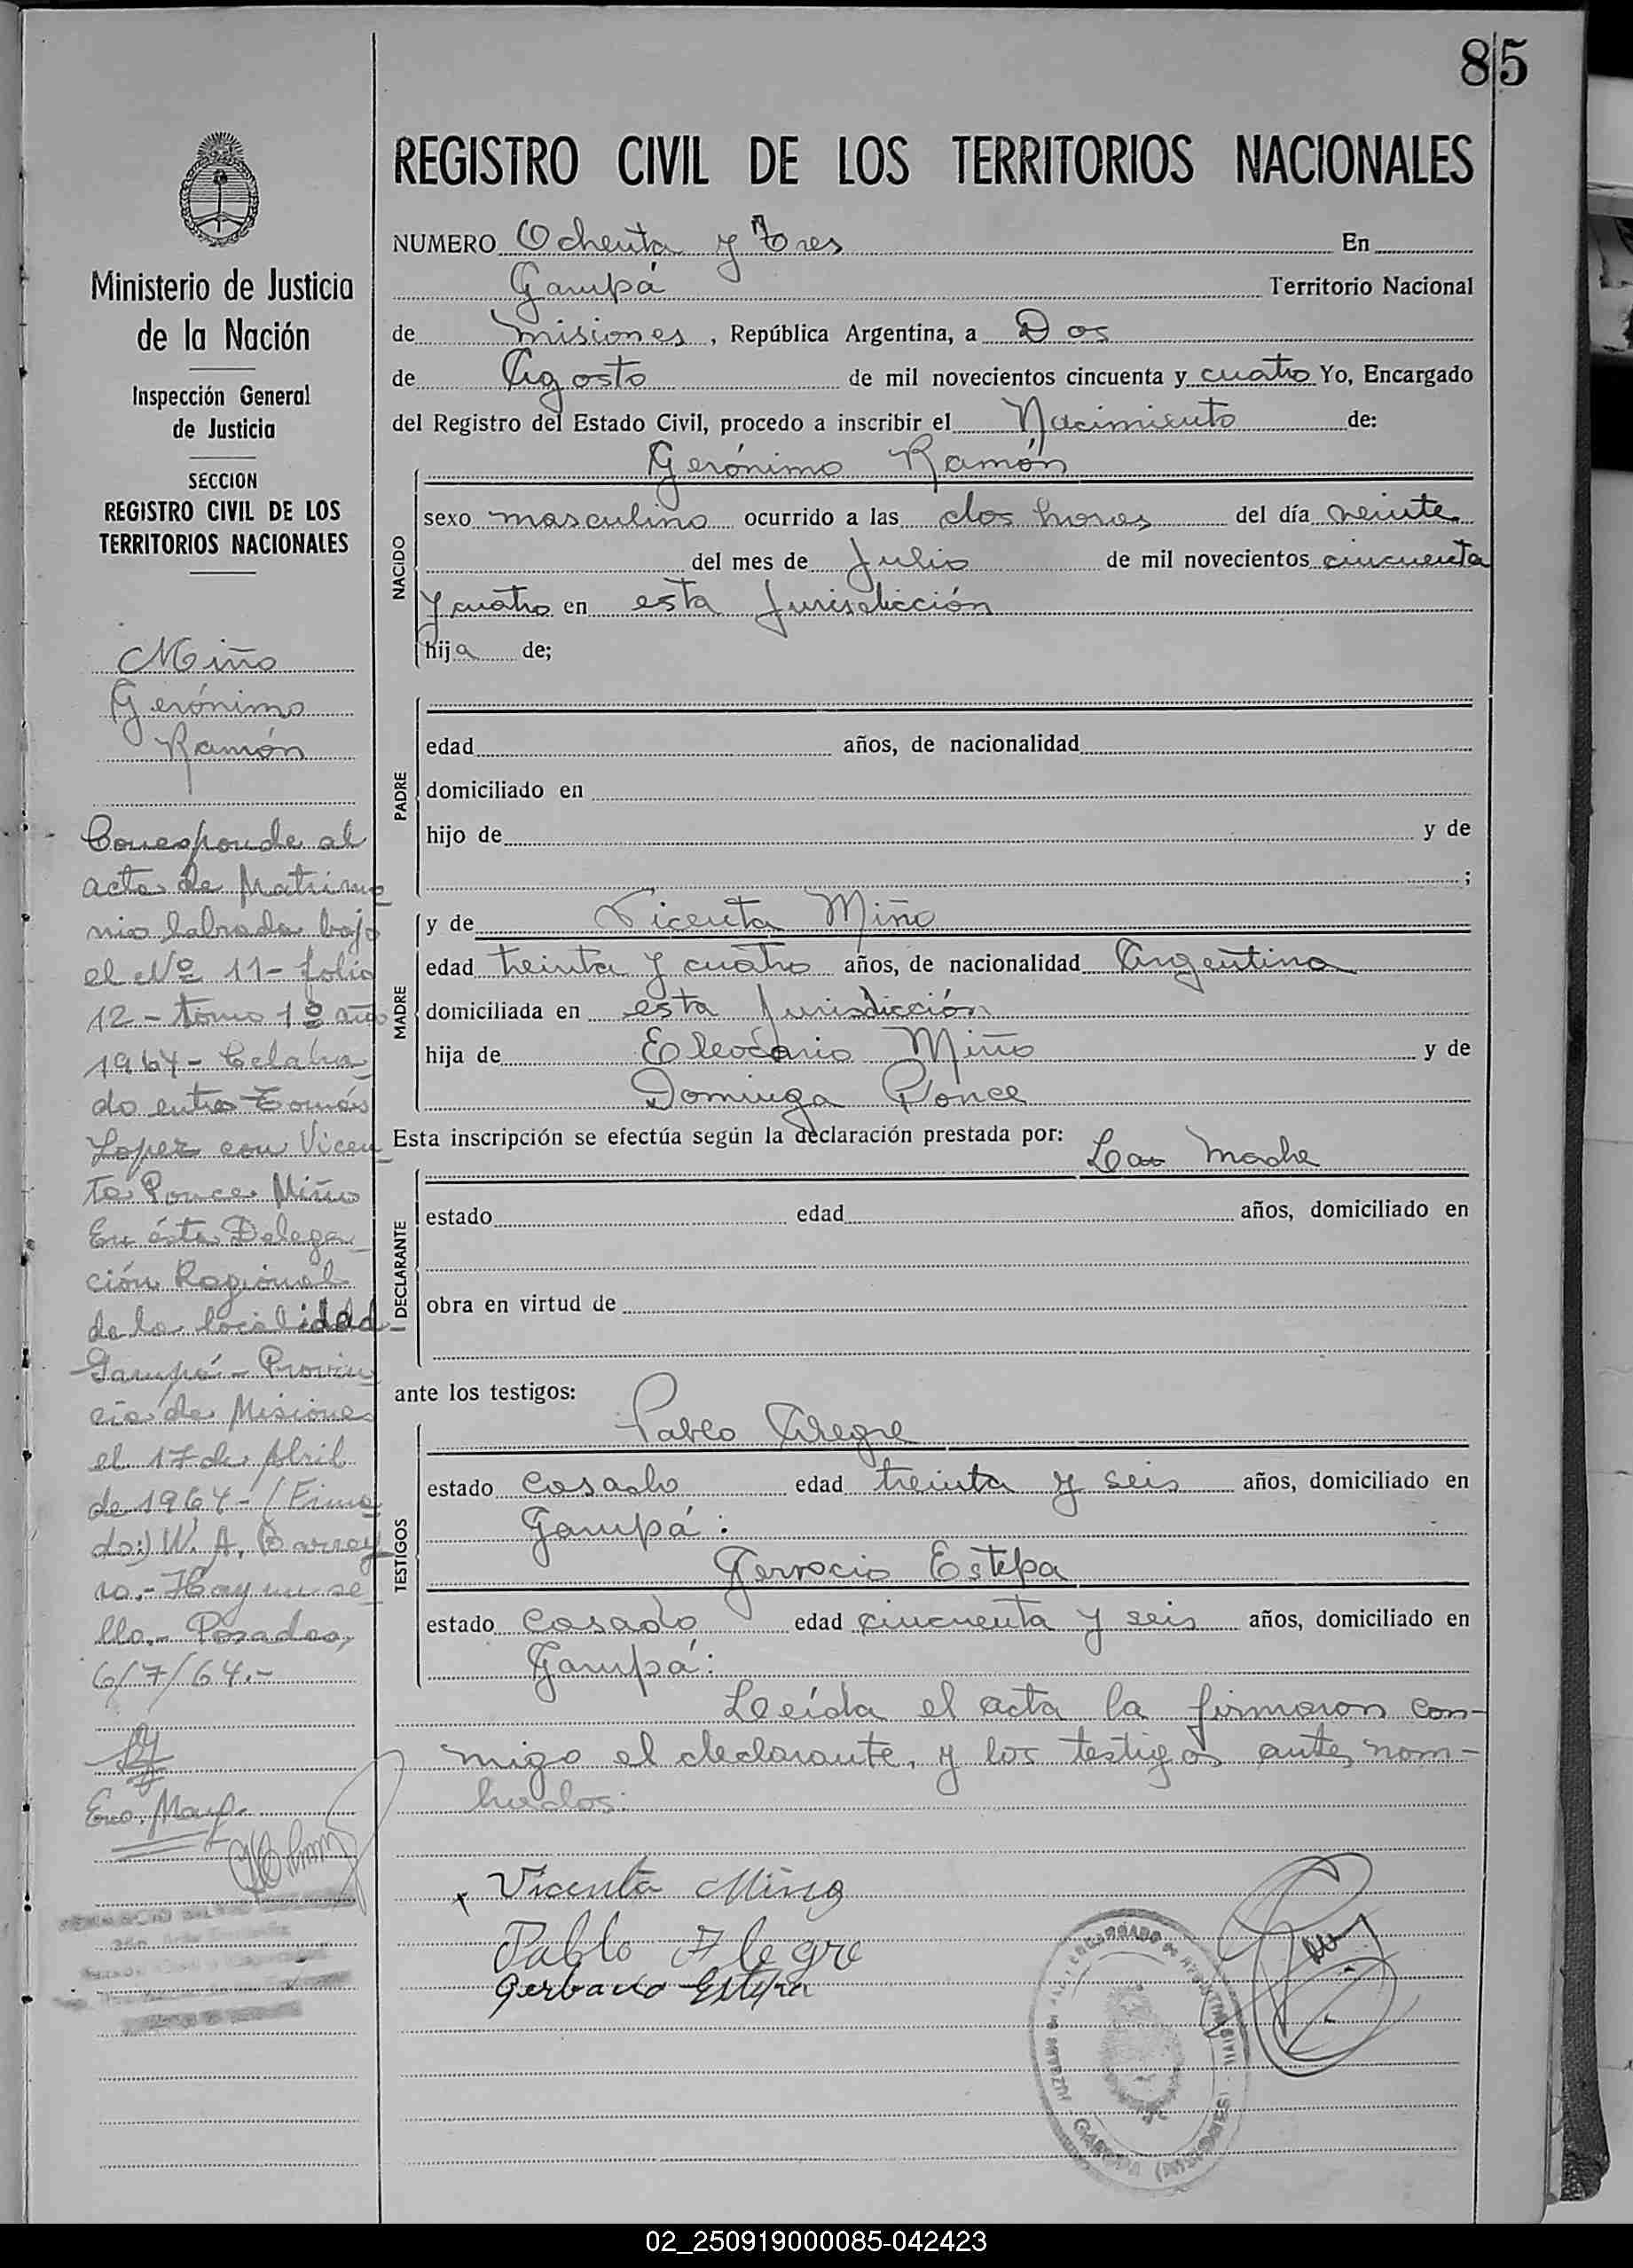 85
REGISTRO CIVIL DE LOS TERRITORIOS NACIONALES
Ministerio de Justicia
de la Nación
Inspección General
de Justicia
SECCION
REGISTRO CIVIL DE LOS
TERRITORIOS NACIONALES
Miño
Gerónimo
Ramón
Corresponde al
acta de Matrimo
nio labrada bajo
el Nº 11- folio
12 - tomo 1º año
1964 - Celebra
do entre Tomás
Lopez con Vicen
ta Ponce Miño
En ésta Delega
ción Regional
de la localidad
Garupá - Provin
cia de Misiones
el 17 de Abril
de 1964 - (Firma
do:) W. A. Barrey
ro.- Hay un se
llo.- Posadas,
6/7/64.-
NUMERO Ochenta y Tres En
Garupá Territorio Nacional
de Misiones, República Argentina, a Dos
de Agosto de mil novecientos cincuenta y cuatro Yo, Encargado
del Registro del Estado Civil, procedo a inscribir el Nacimiento de:
Gerónimo Ramón
NACIDO
sexo masculino ocurrido a las dos horas del día veinte
del mes de Julio de mil novecientos cincuenta
y cuatro en esta Jurisdicción
hija de;
PADRE
edad años, de nacionalidad
domiciliado en
hijo de y de
;
MADRE
y de Vicenta Miño
edad treinta y cuatro años, de nacionalidad Argentina
domiciliada en esta Jurisdicción
hija de Eleodario Miño y de
Dominga Ponce
Esta inscripción se efectúa según la declaración prestada por: La Madre
DECLARANTE
estado edad años, domiciliado en
obra en virtud de
ante los testigos:
TESTIGOS
Pablo Alegre
estado Casado edad treinta y seis años, domiciliado en
Garupá:
Gervacio Estepa
estado Casado edad cincuenta y seis años, domiciliado en
Garupá:
Leída el acta la firmaron con-
migo el declarante, y los testigos antes nom-
brados:
Vicenta Miño
Pablo Alegre
Gerbacio Estepa
02_250919000085-042423